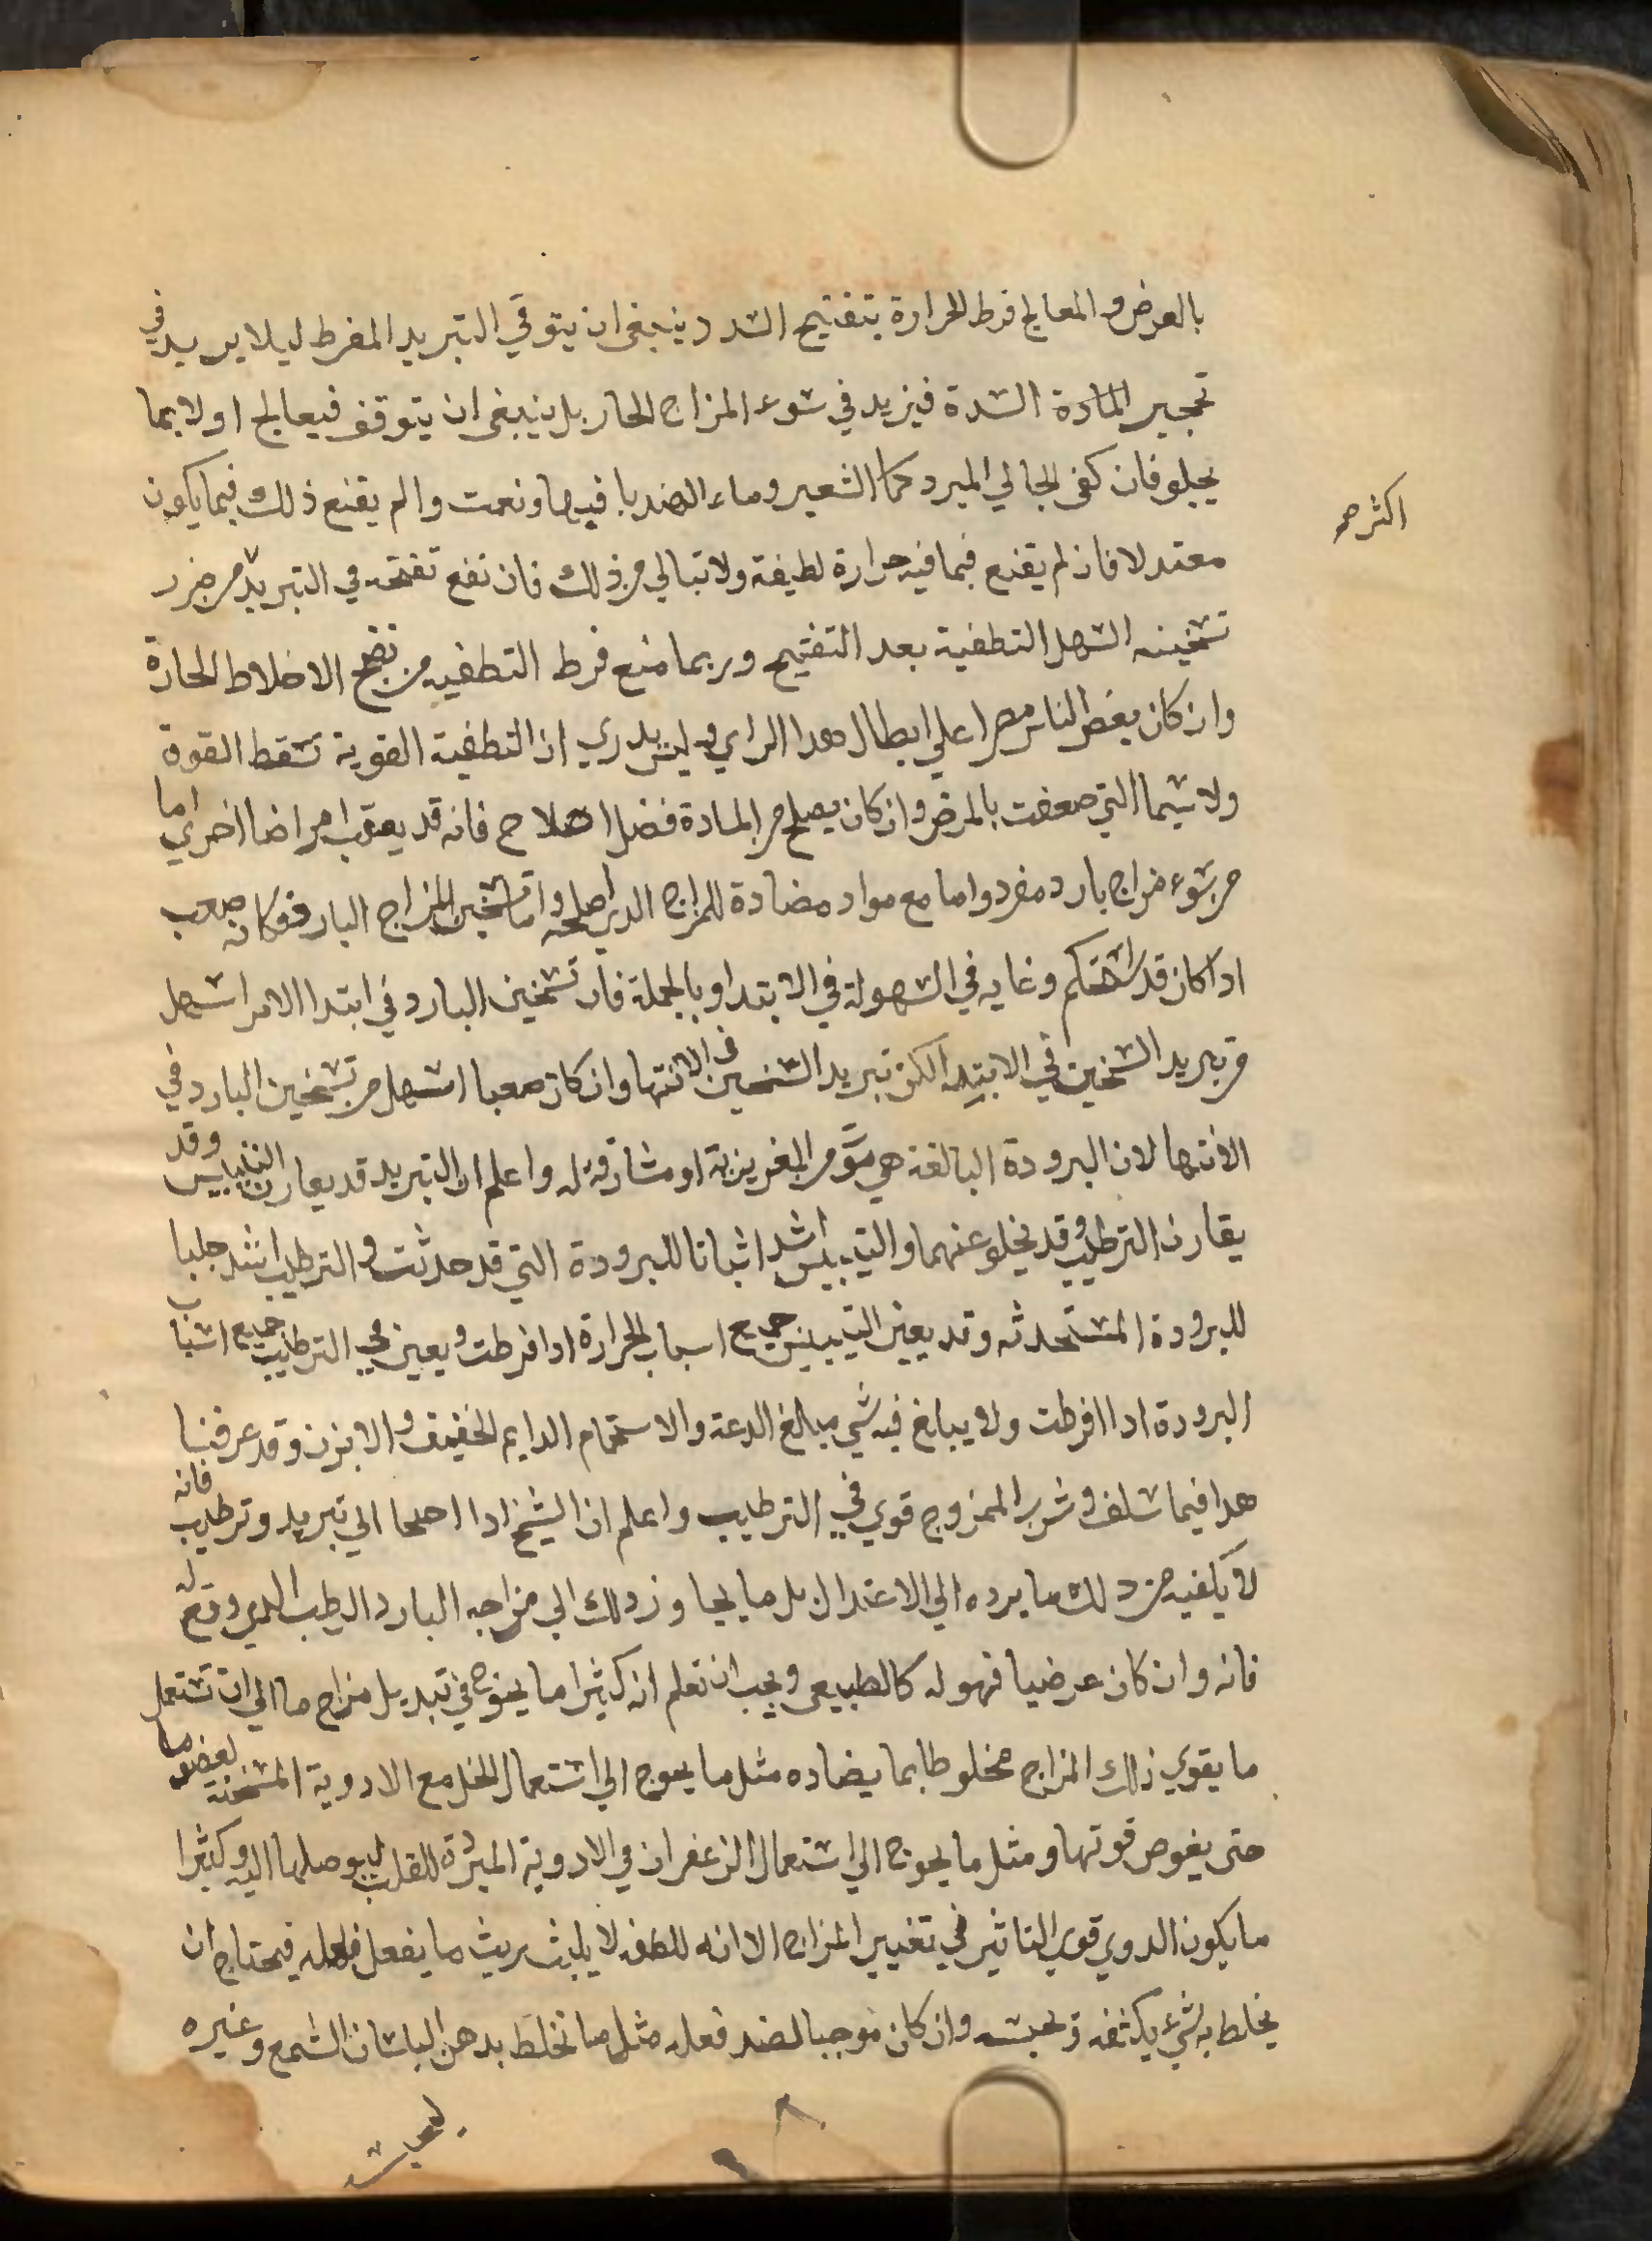 بالعرض والمعالج فرط الحرارة بتفتيح السدد ينبغي ان يتوقي التبريد المفرط ليلا يزيد في
تحجير المادة السدة فيزيد في سوء المزاج الحار بل ينبغي ان يتوقف فيعالج اولا بما
يجلو فان كفى الجالي المبرد كما الشعير وماء الهندبا فبها ونعمت والم يقنع ذلك فيما يكون
اكثر صح
معتدلا فان لم يقنع فيما فيه حرارة لطيفة ولا تبالي من ذلك فان نفع تفتحه في التبريد من ضرر
تسخينه السهل التطفية بعد التفتيح وربما منع فرط التطفيه من نضج الاخلاط الحادة
وان كان بعض الناس مصرا علي ابطال هدا الراي وليس يدري ان التطفية القوية تسقط القوة
ولا سيما التي ضعفت بالمرض وان كان يصلح من المادة فضل اصلاح فانه قد يعقب امراضا اخري اما
من سوء مزاج بارد مفرد واما مع مواد مضادة للمزاج الدي اصلحه واما تسخين المزاج البارد فكانه صعب
ادا كان قد استحكم وغايه في السهولة في الابتدا وبالجملة فان تسخين البارد في ابتدا الامر اسهل
من تبريد السخين في الابتدا لكن تبريد السخين في الانتها وان كان صعبا اسهل من تسخين البارد في
الانتها لان البرودة البالغة هي موت من الغريزية او مشارفة له واعلم ان التبريد قد يقارن التيبيس وقد
يقارن الترطيب وقد يخلو عنهما والتيبيس اشد اثباتا للبرودة التي قد حدثت والترطيب اشد جلبا
للبرودة المستحدثه وقد يعين التيبيس جميع اسباب الحرارة ادا افرطت ويعين في الترطيب جميع اسباب
البرودة ادا افرطت ولا يبالغ فيه شي مبالغ الدعة والاستحمام الدايم الخفيف والابزن وقد عرفنا
هدا فيما سلف وشرب الممزوج قوي في الترطيب واعلم ان الشيخ ادا احتاج الي تبريد وترطيب فانه
لا يكفيه من دلك ما يرده الي الاعتدال بل ما يجاوز دلك الي مزاجه البارد الرطب الدي وقع له
فانه وان كان عرضيا فهو له كالطبيعي ويجب ان تعلم انه كثيرا ما يحوج في تبديل مزاج ما الي ان تستعمل
ما يقوي ذلك المزاج مخلوطا بما يضاده مثل ما يحوج الي استعمال الخل مع الادوية المسخنه لعضو ما
حتى يغوص قوتها ومثل ما يحوج الي استعمال الزعفران في الادوية المبردة للقلب ليوصلها اليه وكثيرا
ما يكون الدوي قوي التاثير في تغيير المزاج الا انه للطفه لا يلبث ريث ما يفعل فعله فيحتاج ان
يخلط به شيء يكثفه وحبسه وان كان موجبا لضد فعله مثل ما نخلط بدهن البلسان الشمع وغيره